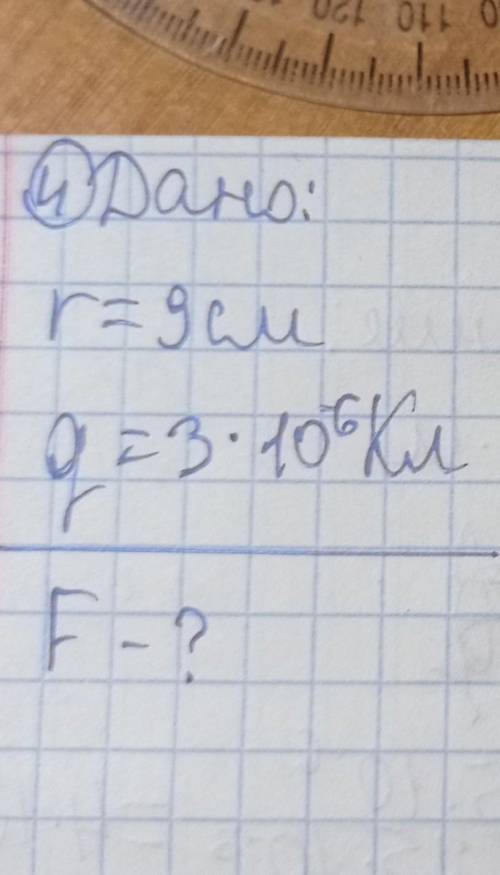 110 120
④ Дано:
r = 9 см
q = 3 · 10⁻⁶ Кл
F - ?